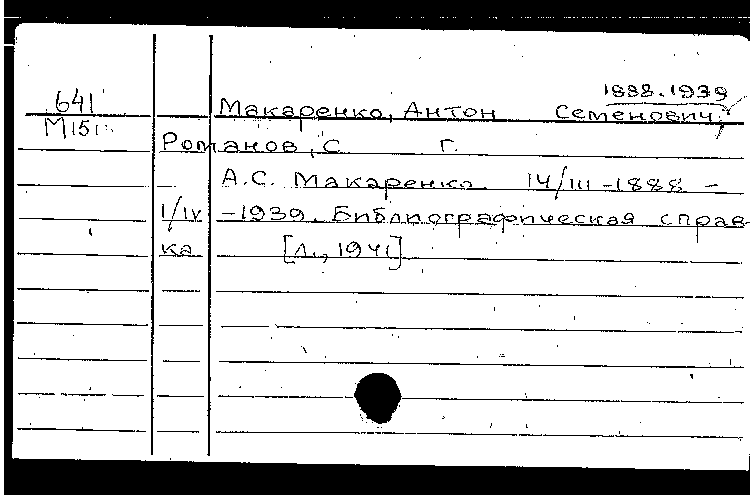 1888.1939
641 Макаренко, Антон Семенович,
М151
Романов, С. г.
А.С. Макаренко. 14/III-1888 -
1/IV -1939. Библиографическая справ-
ка [Л., 1941]